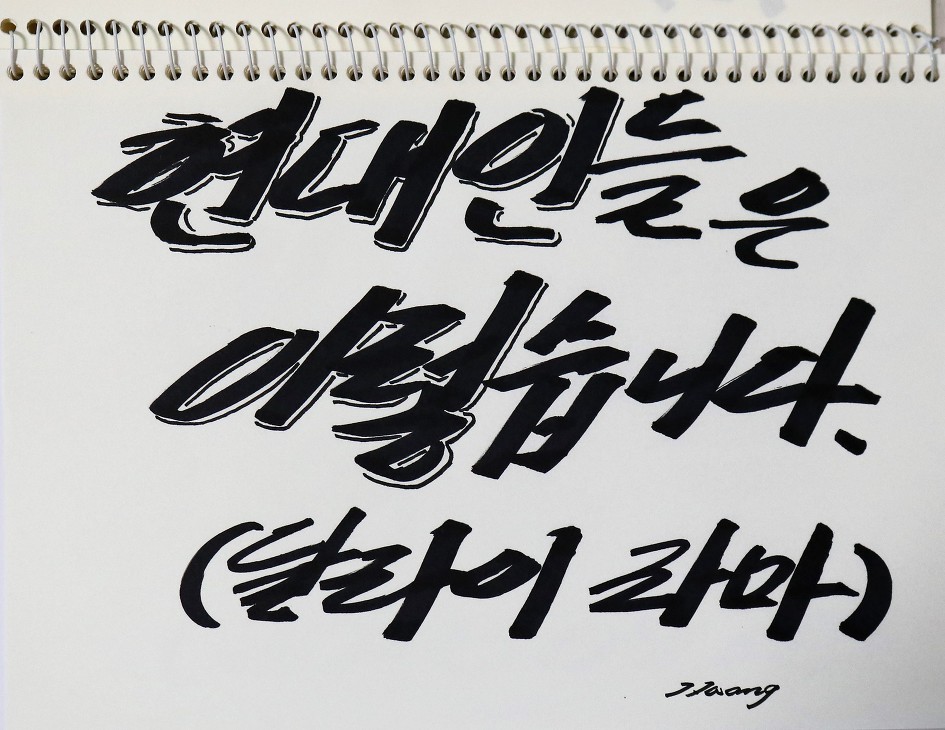 현대인들은
이렇습니다.
(달라이 라마)
JJwang